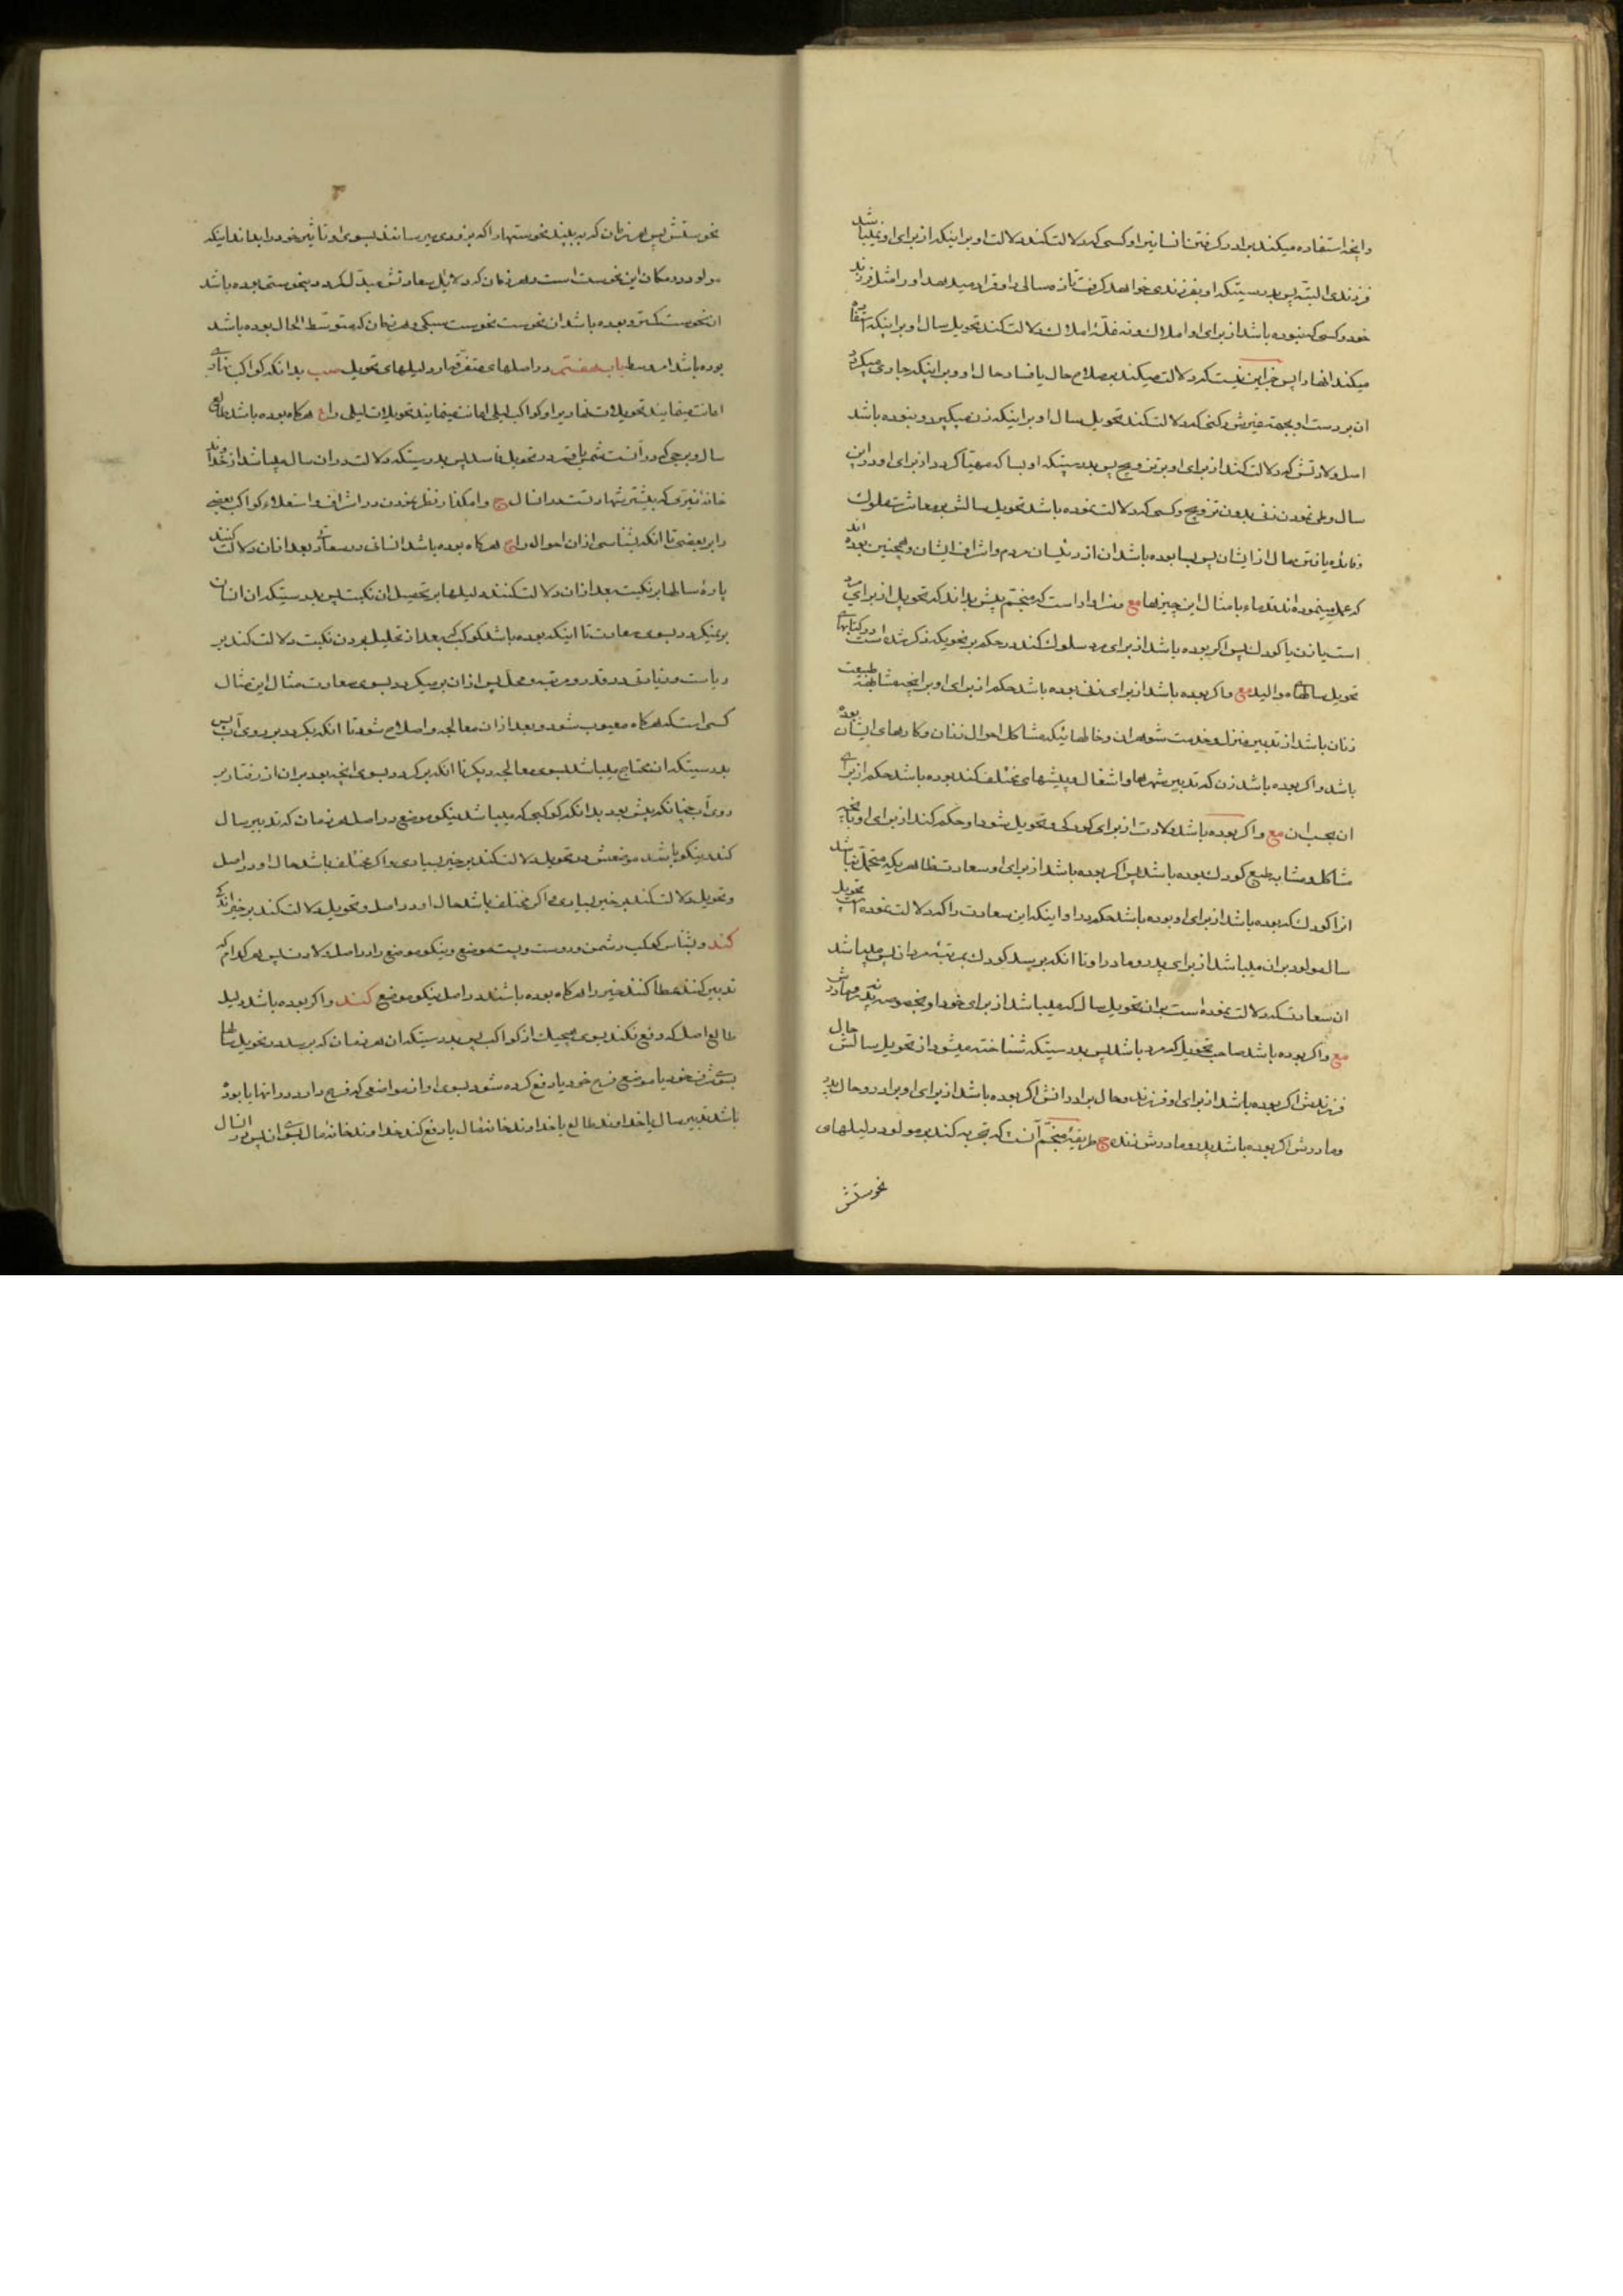 وانچه استفاده میکند برادر کرفتن انسانیرا و کسی که دلالت کند دلالت او بر اینکه از برای او نمیباشد
فرزندی البته پس بدرستیکه او بفرزندی خواهد کرفت تازه مسالی را و قرار میدهد او را مثل فرزند
خود و کسی که نبوده باشد از برای او املاک و نه غلهٔ املاک دلالت کند تحویل سال او بر اینکه استفاده
میکند انها را پس جز این نیست که دلالت میکند بصلاح حال یا فساد حال او و بر اینکه جاری میکردد
ان بر دست او بجهت غیرش و کنی که دلالت کند تحویل سال او بر اینکه زن میکیرد و نبوده باشد
اصل ولادتش که دلالت کند از برای او بر تزویج پس بدرستیکه او بسا که مهیّا کردد از برای او در این
سال وطی نمودن زنی بدون تزویج و کسی که دلالت نموده باشد تحویل سالش بر معاشرت ملوک
و فائده یافتن مال از ایشان پس بسا بوده باشد ان از رئیسان مردم و اشراف ایشان و همچنین بوده اند
که عمل مینموده اند قدماء بامثال این چیزها مع سزاوار است که منجّم پیش بداند که تحویل از برای مرد
است یا زن یا کودک پس اکر بوده باشد از برای مرد سلوک کند در حکم بر نحویکه ذکر شده است در کتابهای
تحویل سالهای موالید مع و اکر بوده باشد از برای زنی بوده باشد حکم از برای او بر انچه مشابهت طبیعت
زنان باشد از تدبیر منزل و خدمت شوهران و حالهائیکه مشاکل احوال زنان و کارهای ایشان بوده
باشد و اکر بوده باشد زن که تدبیر شهرها و اشغال و پیشهای مختلف کند بوده باشد حکم از برای
ان بحسب ان مع و اکر بوده باشد ولادت از برای کودکی و تحویل شود او حکم کند از برای او بانچه
مشاکل و مشابه طبع کودک بوده باشد پس اکر بوده باشد از برای او سعادت ظاهریکه متحمل نباشد
انرا کودک که بوده باشد از برای او بوده باشد حکم بر او اینکه این سعادت را که دلالت نموده است تحویل
سال مولود بر ان میباشد از برای پدر و مادر او تا انکه برسد کودک بمرتبهٔ مردان پس میباشد
ان سعادتکه دلالت نموده است بر ان تحویل سال که میباشد از برای خود او بخصوص نه پدر و مادرش
مع و اکر بوده باشد صاحب تحویل که مرد باشد پس بدرستیکه شناخته میشود از تحویل سالش حال
فرزندش اکر بوده باشد از برای او فرزند و حال برادرانش اکر بوده باشد از برای او برادر و حال پدر
و مادرش اکر بوده باشد پدر و مادرش زنده ح طریقهٔ منجّم آنست که تجربه کند بر مولود دلیلهای
نحوستش
نحوستش پس هر زمان که ببیند نحوستها را که بزودی میرسانند بسوی او تاثیر خود را بداند اینکه
مولود در مکان این نحوست است و هر زمان که دلایل سعادتش مبدّل کردد بنحوستها بوده باشد
ان نحوست کمتر و بوده باشد ان نحوست نحوست سبکی و هر زمان که متوسّط الحال بوده باشد
بوده باشد امر وسط باب هفتم در اصلهای متفرّقه از دلیلهای تحویل بدانکه کواکب نهاری
اعانت مینمایند تحویلات نهاریرا و کواکب لیلی اعانت مینمایند تحویلات لیلی را ع هرکاه بوده باشد طالع
سال و برجی که در آنست شمس یا قمر در تحویل فاسد پس بدرستیکه دلالت در ان سال میباشد از خداوند
خانهٔ نیّری که بیشتر شهادتست در انسال ح وامکذار نظر نمودن در اشراف و استعلاء کواکب بعضی
را بر بعضی تا انکه بشناسی از ان احوال را ع هرکاه بوده باشد انسانی در سعادتی بعد از ان دلالت کنند
پارهٔ سالها بر نکبت بعد از ان دلالت کنند دلیلها بر تحصیل ان نکبت پس بدرستیکه ان انسان
برنمیکردد بسوی سعادت تا اینکه بوده باشد کوکب که بعد از تحلیل بردن نکبت دلالت کند بر
ریاست و زیادتی در قدر و مرتبه و محل پس از ان برمیکردد بسوی سعادت مثال این مثال
کسی است که هرکاه معیوب شود و بعد از ان معالجه و اصلاح شود تا انکه بکردد بر روی آب پس
بدرستیکه ان محتاج میباشد بسوی معالجه دیکر تا انکه برکردد بسوی انچه بود بر ان از رفتار بر
روی آب چنانکه پیش بود بدانکه کوکبی که میباشد نیکو موضع در اصل هر زمان که تدبیر سال
کند نیکو باشد موضعش در تحویل دلالت کند بر خیر بسیاری و اکر مختلف باشد حال او در اصل
و تحویل دلالت کند بر خیر بسیاری و اکر مختلف باشد حال او در اصل و تحویل دلالت کند بر خیر اندکی
کند و بشناس کوکب دشمن و دوست و پست موضع و نیکو موضع را در اصل ولادت پس هر کدام که
تدبیر کنند عطا کنند خیر را هرکاه بوده باشند در اصل نیکو موضع کند و اکر بوده باشد دلیل
طالع اصل که دفع نکند بسوی هیچیک از کواکب پس بدرستیکه ان هر زمان که برسد در تحویل سالها
بسوی شرف خود یا موضع فرح خود یا دفع کرده شود بسوی او از مواضعی که فرح دارد در انها یا بوده
باشد تدبیر سال یا خداوند طالع یا خداوند خانه انتقال یا دفع کند خداوند خانهٔ مال بسوی ان پس در انسال